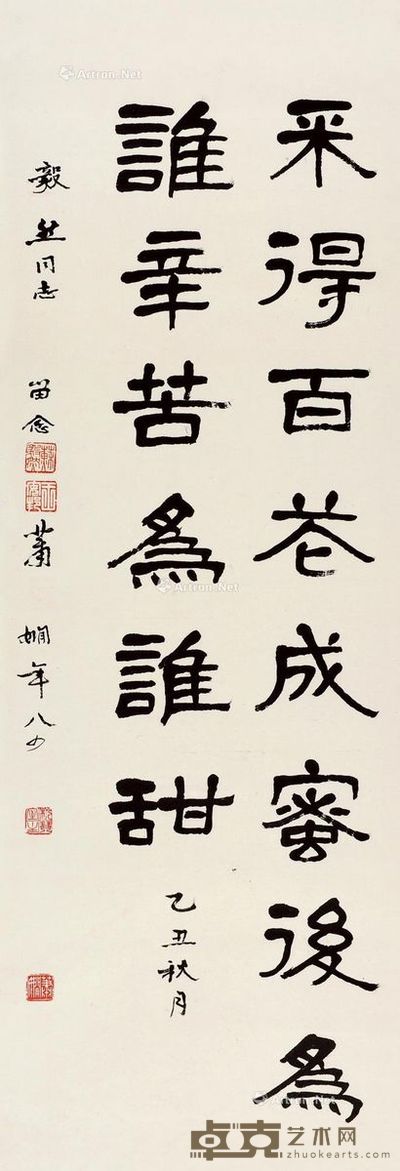 采得百花成蜜後為
誰辛苦為誰甜
乙丑秋月
毅然同志 留念
蕭嫺年八四
Artron.Net
Artron.Net
Artron.Net
Artron.Net
卓克艺术网
zhuokearts.com